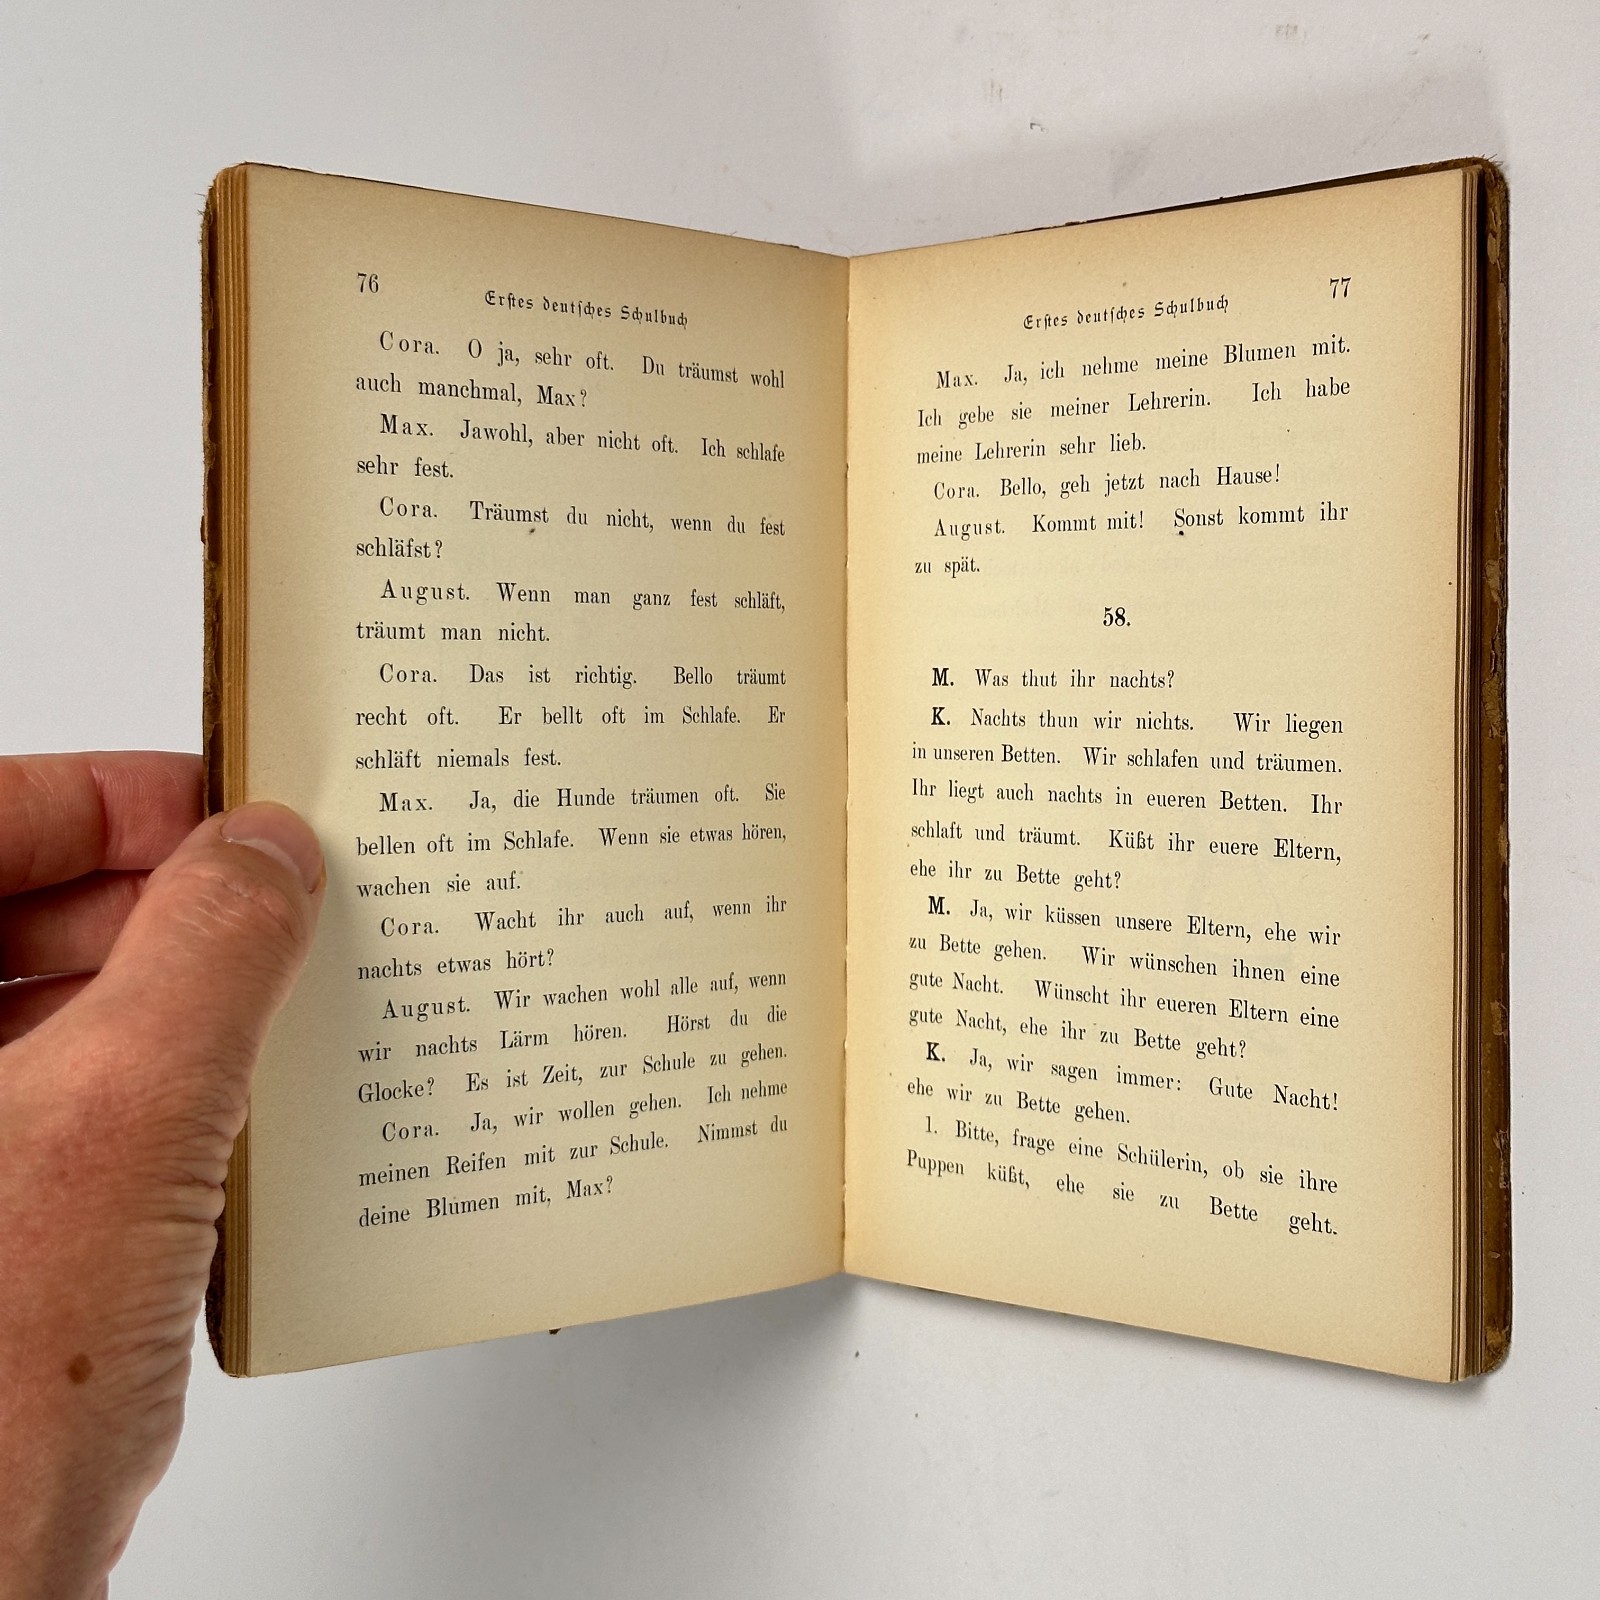 76
Erstes deutsches Schulbuch
Cora. O ja, sehr oft. Du träumst wohl
auch manchmal, Max?
Max. Jawohl, aber nicht oft. Ich schlafe
sehr fest.
Cora. Träumst du nicht, wenn du fest
schläfst?
August. Wenn man ganz fest schläft,
träumt man nicht.
Cora. Das ist richtig. Bello träumt
recht oft. Er bellt oft im Schlafe. Er
schläft niemals fest.
Max. Ja, die Hunde träumen oft. Sie
bellen oft im Schlafe. Wenn sie etwas hören,
wachen sie auf.
Cora. Wacht ihr auch auf, wenn ihr
nachts etwas hört?
August. Wir wachen wohl alle auf, wenn
wir nachts Lärm hören. Hörst du die
Glocke? Es ist Zeit, zur Schule zu gehen.
Cora. Ja, wir wollen gehen. Ich nehme
meinen Reifen mit zur Schule. Nimmst du
deine Blumen mit, Max?
77
Erstes deutsches Schulbuch
Max. Ja, ich nehme meine Blumen mit.
Ich gebe sie meiner Lehrerin. Ich habe
meine Lehrerin sehr lieb.
Cora. Bello, geh jetzt nach Hause!
August. Kommt mit! Sonst kommt ihr
zu spät.
58.
M. Was thut ihr nachts?
K. Nachts thun wir nichts. Wir liegen
in unseren Betten. Wir schlafen und träumen.
Ihr liegt auch nachts in eueren Betten. Ihr
schlaft und träumt. Küßt ihr euere Eltern,
ehe ihr zu Bette geht?
M. Ja, wir küssen unsere Eltern, ehe wir
zu Bette gehen. Wir wünschen ihnen eine
gute Nacht. Wünscht ihr eueren Eltern eine
gute Nacht, ehe ihr zu Bette geht?
K. Ja, wir sagen immer: Gute Nacht!
ehe wir zu Bette gehen.
1. Bitte, frage eine Schülerin, ob sie ihre
Puppen küßt, ehe sie zu Bette geht.